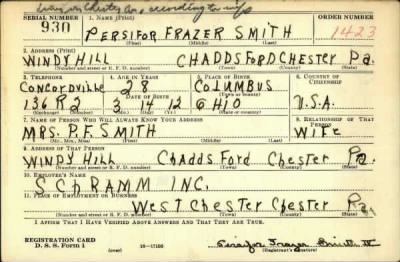 SERIAL NUMBER 1. NAME (Print) ORDER NUMBER
930 PERSIFOR FRAZER SMITH 1423
(First) (Middle) (Last)
2. ADDRESS (Print)
WINDY HILL CHADDSFORD CHESTER Pa.
(Number and street or R. F. D. number) (Town) (County) (State)
3. TELEPHONE 4. AGE IN YEARS 5. PLACE OF BIRTH 6. COUNTRY OF CITIZENSHIP
CONCORDVILLE 28 COLUMBUS
DATE OF BIRTH (Town or county)
136 R 2 3 14 12 OHIO U.S.A.
(Exchange) (Number) (Mo.) (Day) (Yr.) (State or country)
7. NAME OF PERSON WHO WILL ALWAYS KNOW YOUR ADDRESS 8. RELATIONSHIP OF THAT PERSON
MRS. P.F. SMITH WIFE
(Mr., Mrs., Miss) (First) (Middle) (Last)
9. ADDRESS OF THAT PERSON
WINDY HILL CHADDS FORD CHESTER Pa.
(Number and street or R. F. D. number) (Town) (County) (State)
10. EMPLOYER'S NAME
SCHRAMM INC.
11. PLACE OF EMPLOYMENT OR BUSINESS
WEST CHESTER CHESTER Pa.
(Number and street or R. F. D. number) (Town) (County) (State)
I AFFIRM THAT I HAVE VERIFIED ABOVE ANSWERS AND THAT THEY ARE TRUE.
REGISTRATION CARD
D. S. S. Form 1 (over) 16—17105 Persifor Frazer Smith IV
(Registrant's signature)